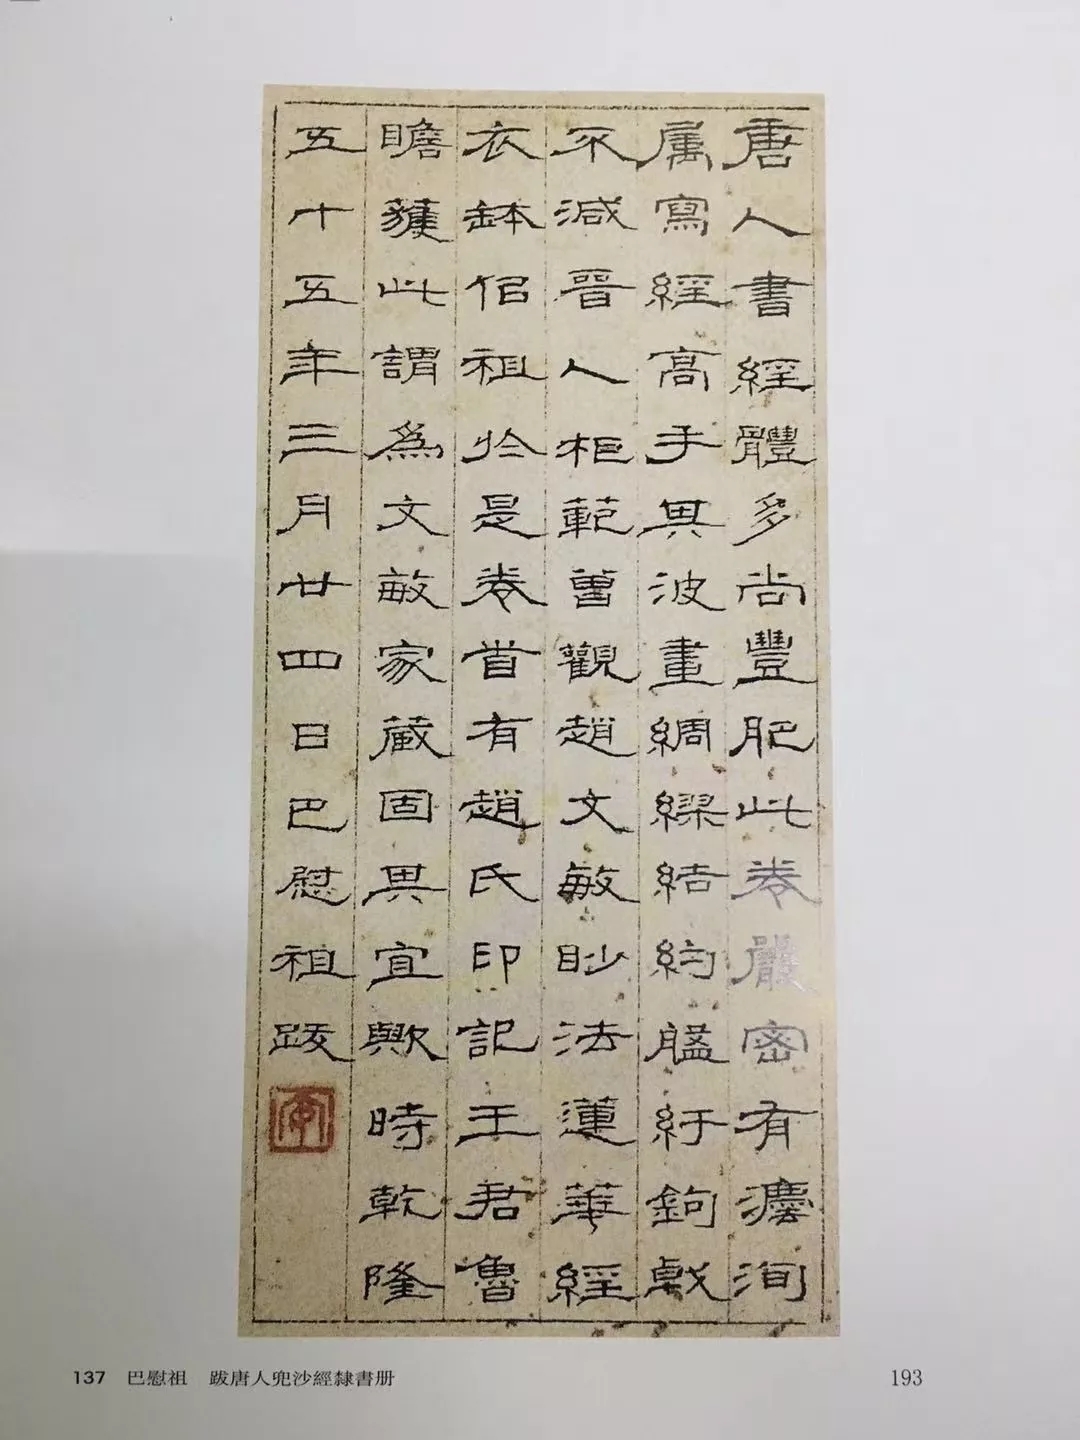 唐人書經體多尚豐肥此卷嚴密有灋洵
属寫經高手其波畫綢繆結約盤紆鉤戟
不減晉人柜範曾觀趙文敏眇法蓮華經
衣缽佀祖於是卷首有趙氏印記王君魯
瞻獲此謂為文敏家藏固其宜歟時乾隆
五十五年三月廿四日巴慰祖跋
137 巴慰祖 跋唐人兜沙經隸書册
193